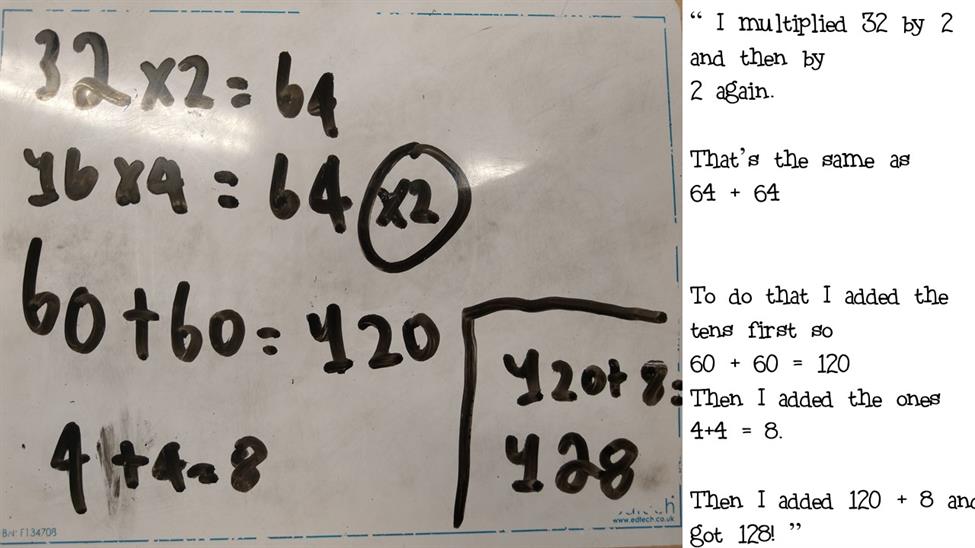 32 x2 = 64
16 x4 = 64 x2
60 + 60 = 120
4 + 4 = 8
120 + 8 =
128
F134708
www.edtech.co.uk
“ I multiplied 32 by 2
and then by
2 again.
That's the same as
64 + 64
To do that I added the
tens first so
60 + 60 = 120
Then I added the ones
4+4 = 8.
Then I added 120 + 8 and
got 128! ”